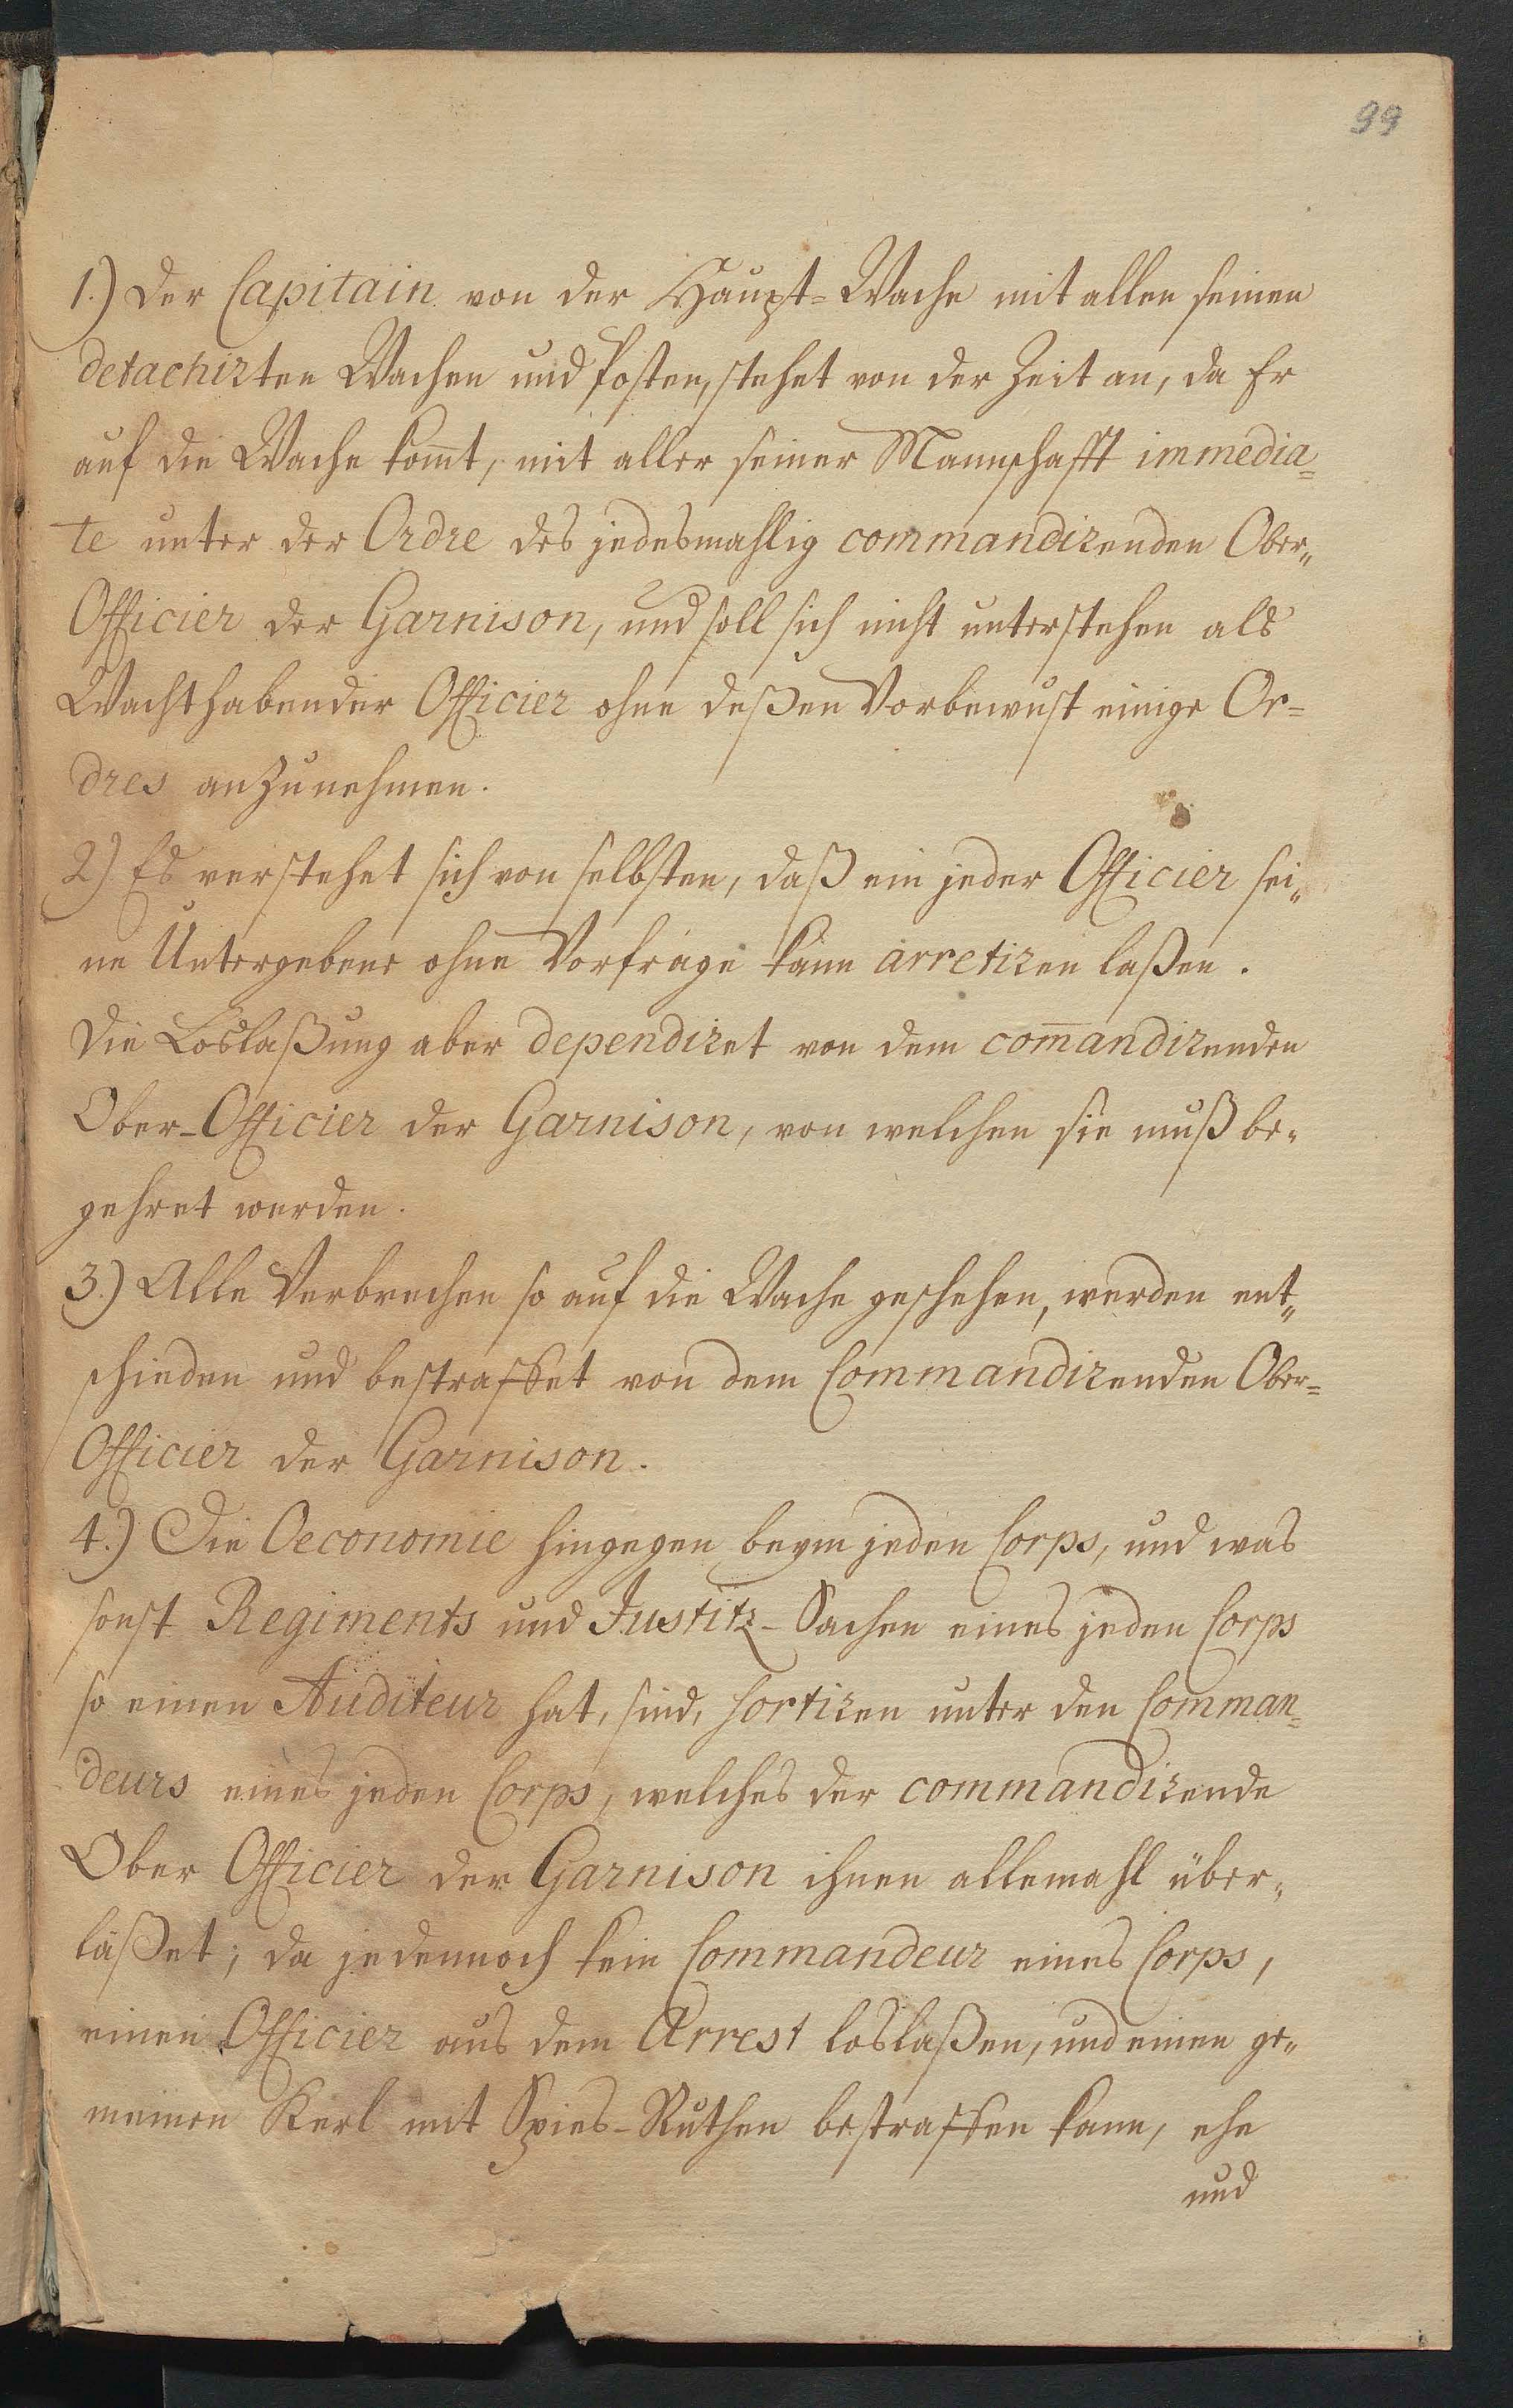 99
1.) Der Capitain von der Haupt=Wache mit allen seinen
detachirten Wachen und Posten, stehet von der Zeit an, da Er
auf die Wache kom̅t, mit aller seiner Mannschafft immedia=
te unter der Ordre des jedesmahlig commandirenden Ober„
Officier der Garnison, und soll sich nicht unterstehen als
Wachthabender Officier ohne deßen Vorbewust einige Or=
dres anzunehmen.
2.) Es verstehet sich von selbsten, daß ein jeder Officier sei„
ne Untergebene ohne Vorfrage kann arretiren laßen.
Die Loslaßung aber dependiret von dem com̅andirenden
Ober-Officier der Garnison, von welchen sie muß be„
gehret werden.
3.) Alle Verbrechen so auf die Wache geschehen, werden ent„
schieden und bestraffet von dem Commandirenden Ober=
Officier der Garnison.
4.) Die Oeconomie hingegen beym jeden Corps, und was
sonst Regiments und Justitz-Sachen eines jeden Corps
so einen Auditeur hat, sind, sortiren unter den Comman=
deurs eines jeden Corps, welches der commandirende
Ober Officier der Garnison ihnen allemahl über„
läßet; da jedennoch kein Commandeur eines Corps,
einen Officier aus dem Arrest loslaßen, und einen ge„
meinen Kerl mit Spies-Ruthen bestraffen kann, ehe
und